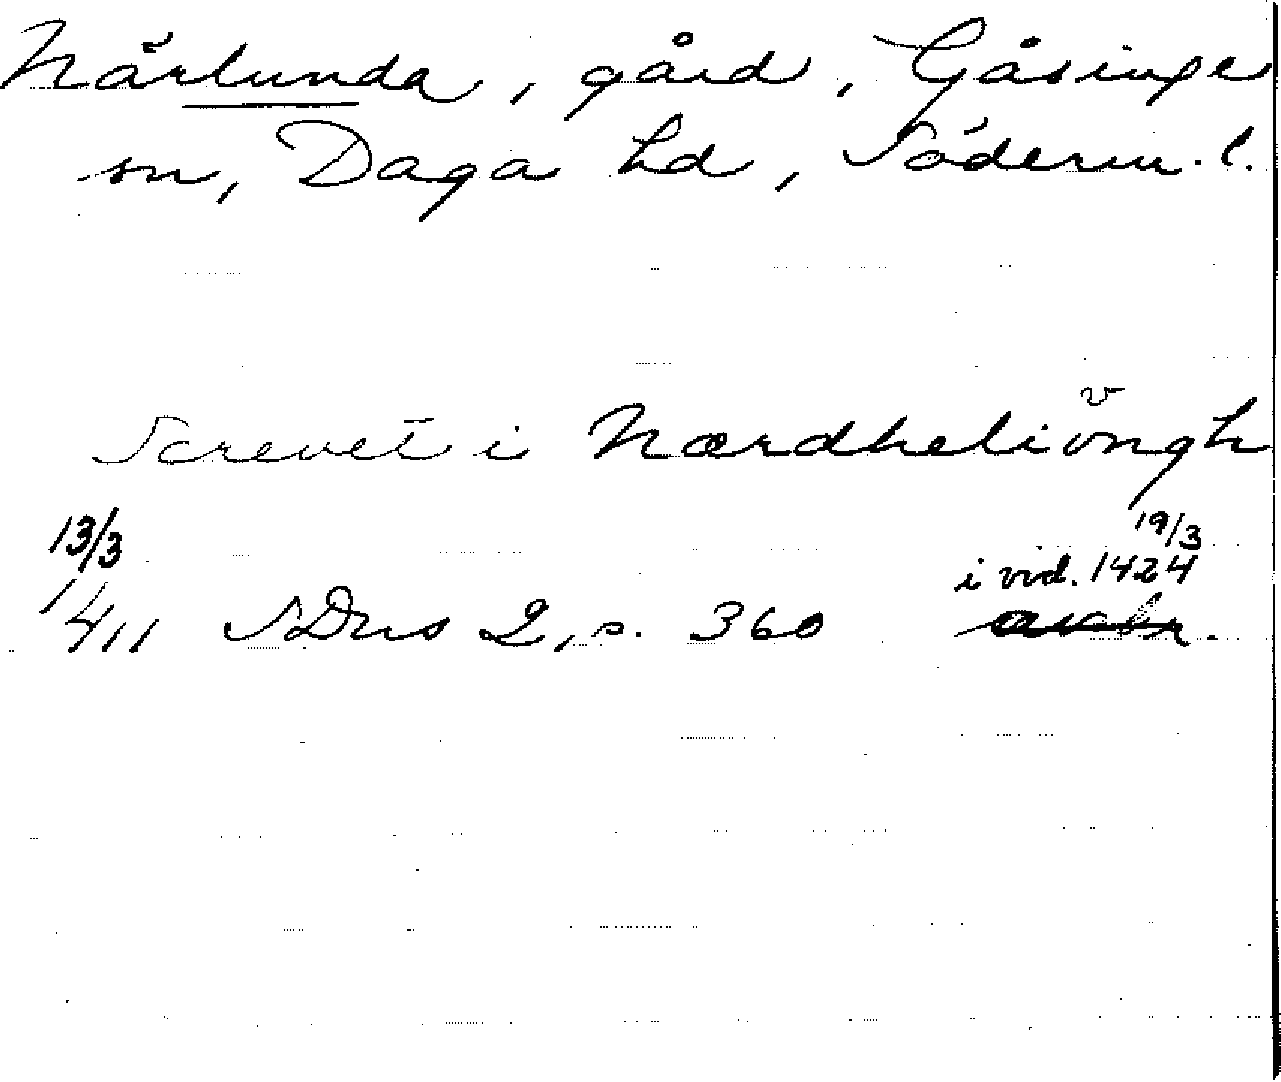 Närlunda, gård, Gåsinge
sn, Daga hd, Söderm. l.
Screvet i Nærdheliŏngh
13/3
1411 SDns 2, s. 360
19/3
i vid. 1424